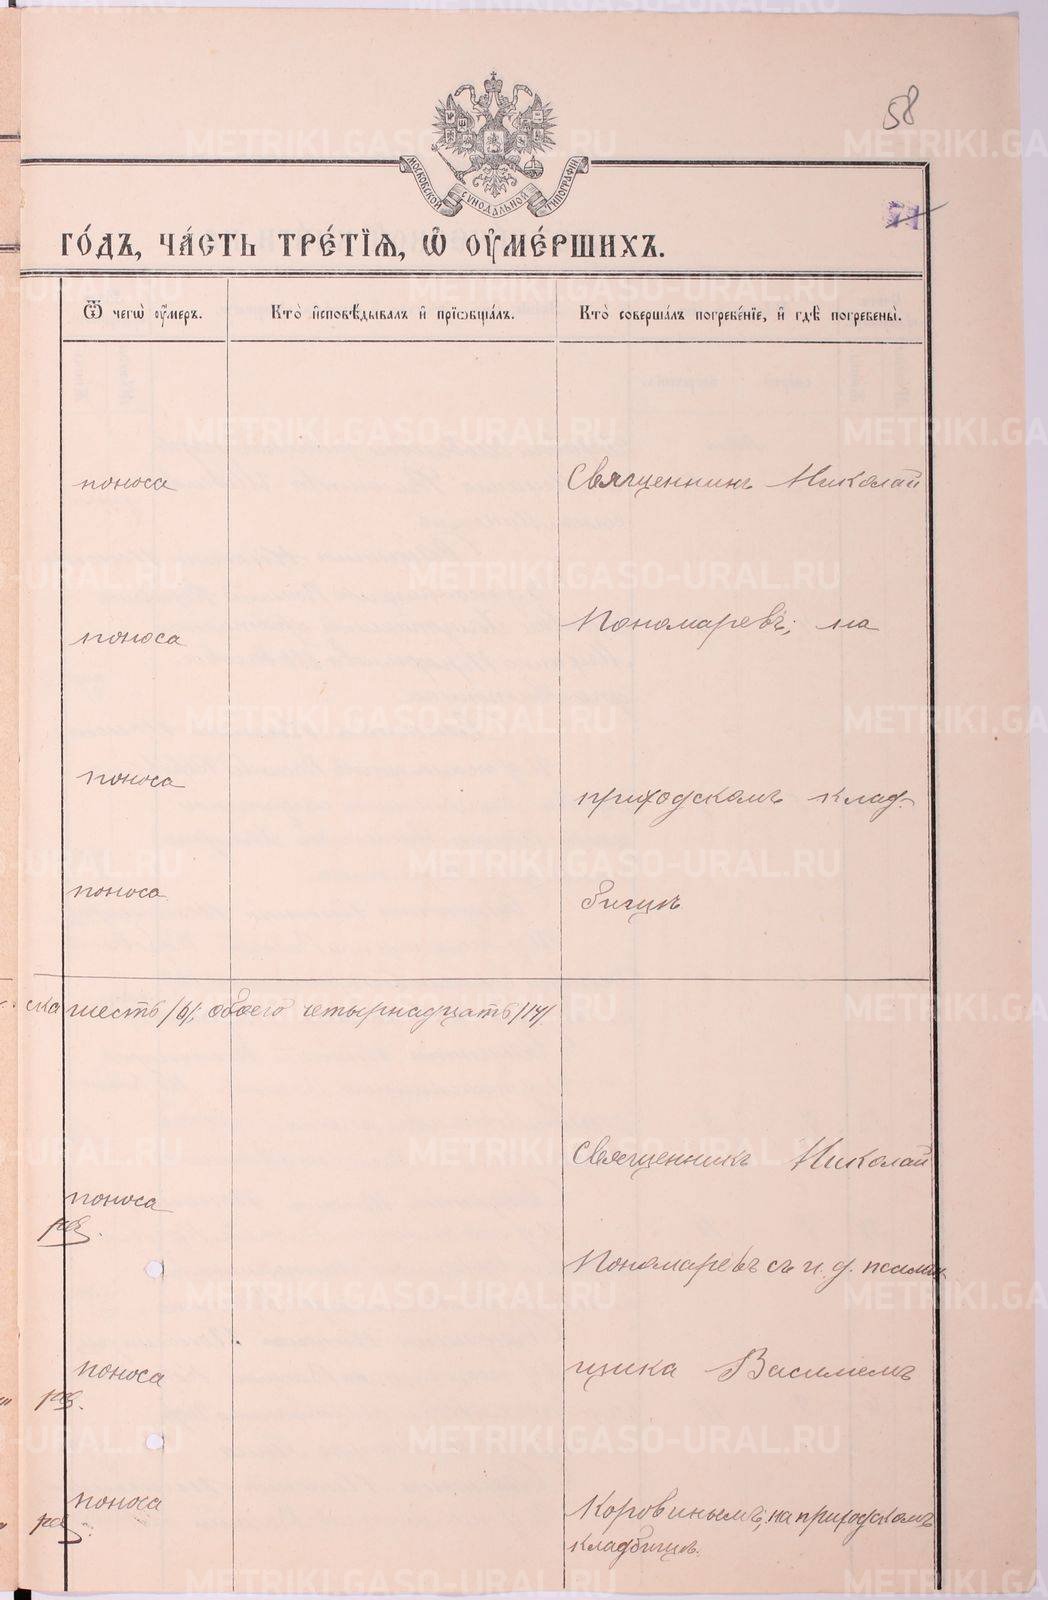 58
МОСКОВСКОЙ СѴНОДАЛЬНОЙ ТИПОГРАФІИ
ГО́ДЪ, ЧА́СТЬ ТРЕ́ТІѦ, Ѡ҆ ОУ҆МЕ́РШИХЪ.
Ѿ чегѡ̀ оу҆́меръ.
Кто̀ и҆сповѣ́дывалъ и҆ прїѡбща́лъ.
Кто̀ соверша́лъ погребе́нїе, и҆ гдѣ̀ погребены̀.
поноса
Священникъ Николай
поноса
Пономаревъ; на
поноса
приходскомъ клад-
поноса
бищѣ
ска шесть /6/, обоего четырнадцать /14/
Священникъ Николай
поноса
Пономаревъ съ и. д. псалом
щика Василіемъ
поноса
поноса
Коровинымъ, на приходскомъ
кладбищѣ.
METRIKI.GASO-URAL.RU